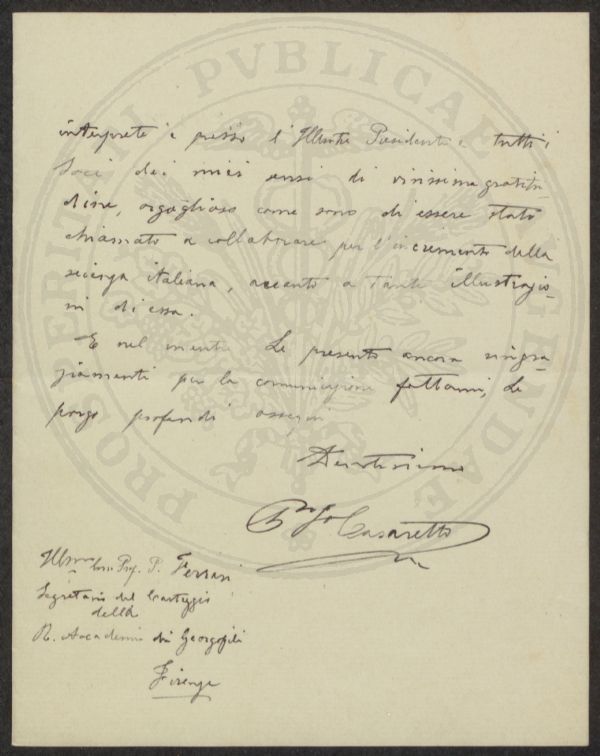 interprete presso l'Illustre Presidente e tutti i
Soci dei miei sensi di vivissima gratitu-
dine, orgoglioso come sono di essere stato
chiamato a collaborare per l'incremento della
scienza italiana, accanto a tante illustrazio-
ni di essa.
E nel mentre Le presento ancora ringra-
ziamenti per la comunicazione fattami, Le
porgo profondi ossequi
Devotissimo
Casaretto
Illmo Prof. P. Ferrari
Segretario del Carteggio
della
R. Accademia dei Georgofili
Firenze
PROSPERITATI PVBLICAE AVGENDAE